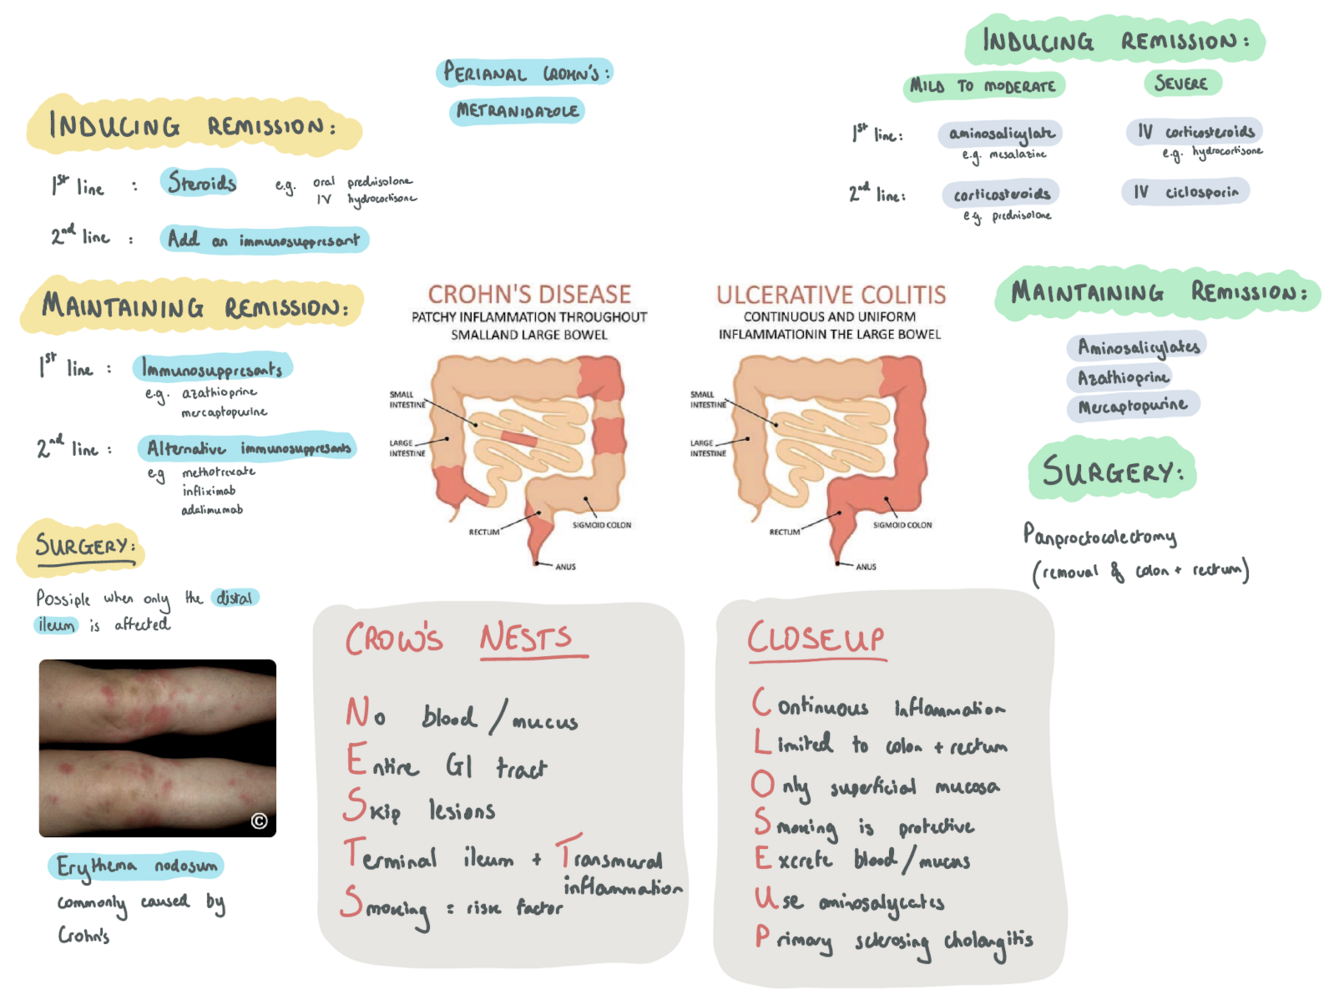 INDUCING REMISSION:
1st line : Steroids e.g. oral prednisolone
IV hydrocortisone
2nd line : Add an immunosuppresant
MAINTAINING REMISSION:
1st line : Immunosuppresants
e.g. azathioprine
mercaptopurine
2nd line : Alternative immunosuppresants
e.g methotrexate
infliximab
adalimumab
SURGERY:
Possiple when only the distal
ileum is affected
©
Erythema nodosum
commonly caused by
Crohn's
PERIANAL CROHN'S:
METRANIDAZOLE
CROHN'S DISEASE
PATCHY INFLAMMATION THROUGHOUT
SMALLAND LARGE BOWEL
SMALL
INTESTINE
LARGE
INTESTINE
RECTUM
SIGMOID COLON
ANUS
CROW'S NESTS
No blood / mucus
Entire GI tract
Skip lesions
Terminal ileum + Transmural
inflammation
Smoking = risk factor
ULCERATIVE COLITIS
CONTINUOUS AND UNIFORM
INFLAMMATIONIN THE LARGE BOWEL
SMALL
INTESTINE
LARGE
INTESTINE
RECTUM
SIGMOID COLON
ANUS
CLOSEUP
Continuous Inflammation
Limited to colon + rectum
Only superficial mucosa
Smoking is protective
Excrete blood / mucus
Use aminosalycates
Primary sclerosing cholangitis
INDUCING REMISSION:
MILD TO MODERATE SEVERE
1st line: aminosalicylate IV corticosteroids
e.g. mesalazine e.g. hydrocortisone
2nd line: corticosteroids IV ciclosporin
e.g. prednisolone
MAINTAINING REMISSION:
Aminosalicylates
Azathioprine
Mercaptopurine
SURGERY:
Panproctocolectomy
(removal of colon + rectum)